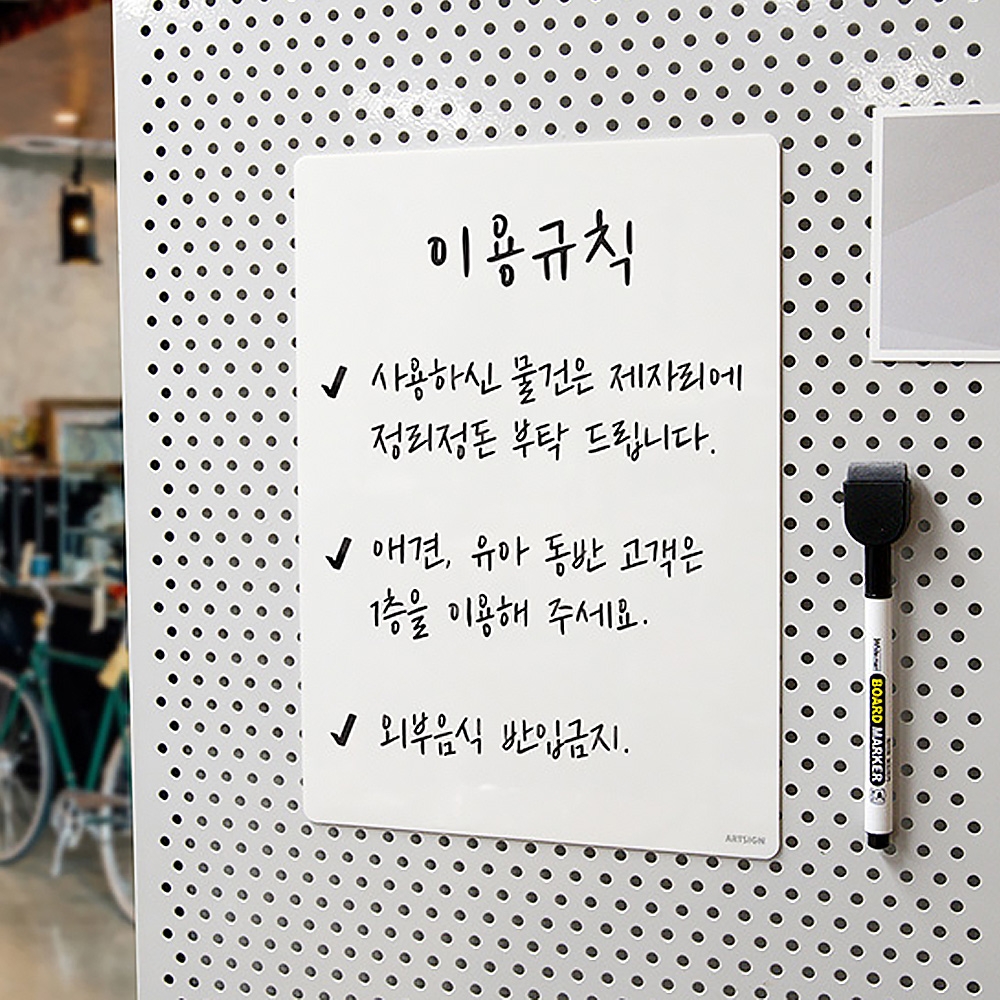 이용규칙
✓ 사용하신 물건은 제자리에
정리정돈 부탁 드립니다.
✓ 애견, 유아 동반 고객은
1층을 이용해 주세요.
✓ 외부음식 반입금지.
ARTSIGN
BOARD MARKER